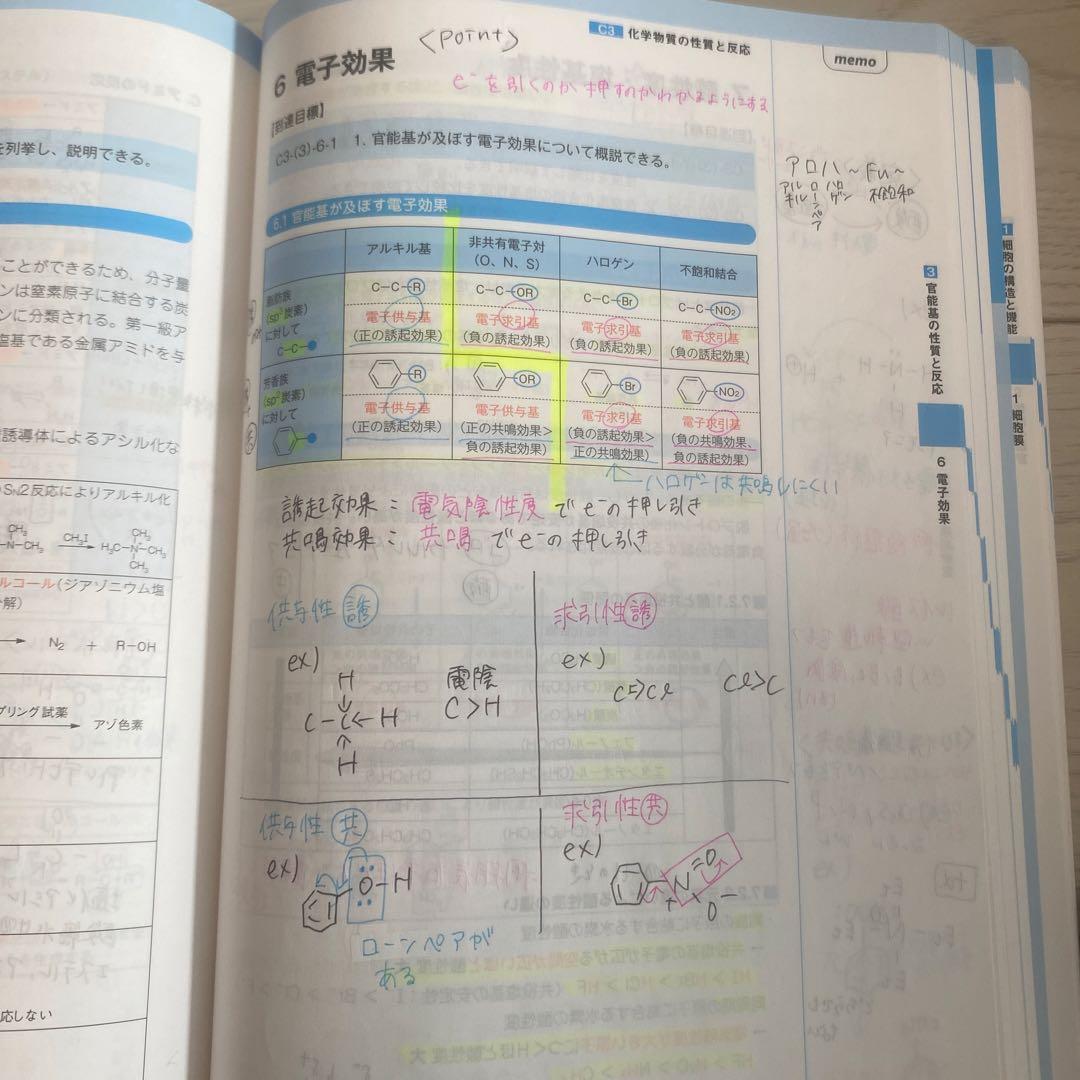 C3 化学物質の性質と反応
<Point>
6 電子効果
e⁻を引くのか押すのかわかるようにする
memo
【到達目標】
C3-(3)-6-1 1. 官能基が及ぼす電子効果について概説できる。
アロハ~Fu~
アルキル
ローンペア
ハロゲン
不飽和
6.1 官能基が及ぼす電子効果
アルキル基
非共有電子対
(O、N、S)
ハロゲン
不飽和結合
脂肪族
(sp³炭素)
に対して
C-C-
C-C-R
電子供与基
(正の誘起効果)
C-C-OR
電子求引基
(負の誘起効果)
C-C-Br
電子求引基
(負の誘起効果)
C-C-NO₂
電子求引基
(負の誘起効果)
芳香族
(sp²炭素)
に対して
R
電子供与基
(正の誘起効果)
OR
電子供与基
(正の共鳴効果>
負の誘起効果)
Br
電子求引基
(負の誘起効果>
正の共鳴効果)
NO₂
電子求引基
(負の共鳴効果、
負の誘起効果)
ハロゲンは共鳴しにくい
誘起効果:電気陰性度でe⁻の押し引き
共鳴効果:共鳴でe⁻の押し引き
供与性 誘
ex)
H
C-C←H
H
電陰
C>H
求引性 誘
ex)
C⇒Cl
Cl>C
供与性 共
ex)
O-H
ローンペアが
ある
求引性 共
ex)
N=O
+
O⁻
1 細胞の構造と機能
3 官能基の性質と反応
1 細胞膜
6 電子効果
を列挙し、説明できる。
ことができるため、分子量
ンは窒素原子に結合する炭
ンに分類される。第一級ア
塩基である金属アミドを与
誘導体によるアシル化な
SN2反応によりアルキル化
CH₃
N-CH₃
CH₃I
CH₃
H₃C-N⁺-CH₃
CH₃
ルコール(ジアゾニウム塩
分解)
N₂ + R-OH
プリング試薬
アゾ色素
応しない